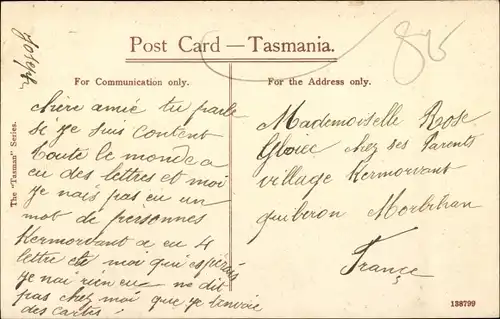 Joseph
845
Post Card — Tasmania.
For Communication only.
For the Address only.
The "Tasman" Series.
chère amié tu parle
si je suis content
toute le monde a
eu des lettres et moi
je nais pas eu un
mot de personnes
Kermorvant a eu 4
lettre et moi qui espérais
je nai rien eu ne dit
pas chez moi que je tenvoie
des cartes
Mademoiselle Rose
chez ses Parents
village Kermorvant
quiberon Morbihan
France
138799